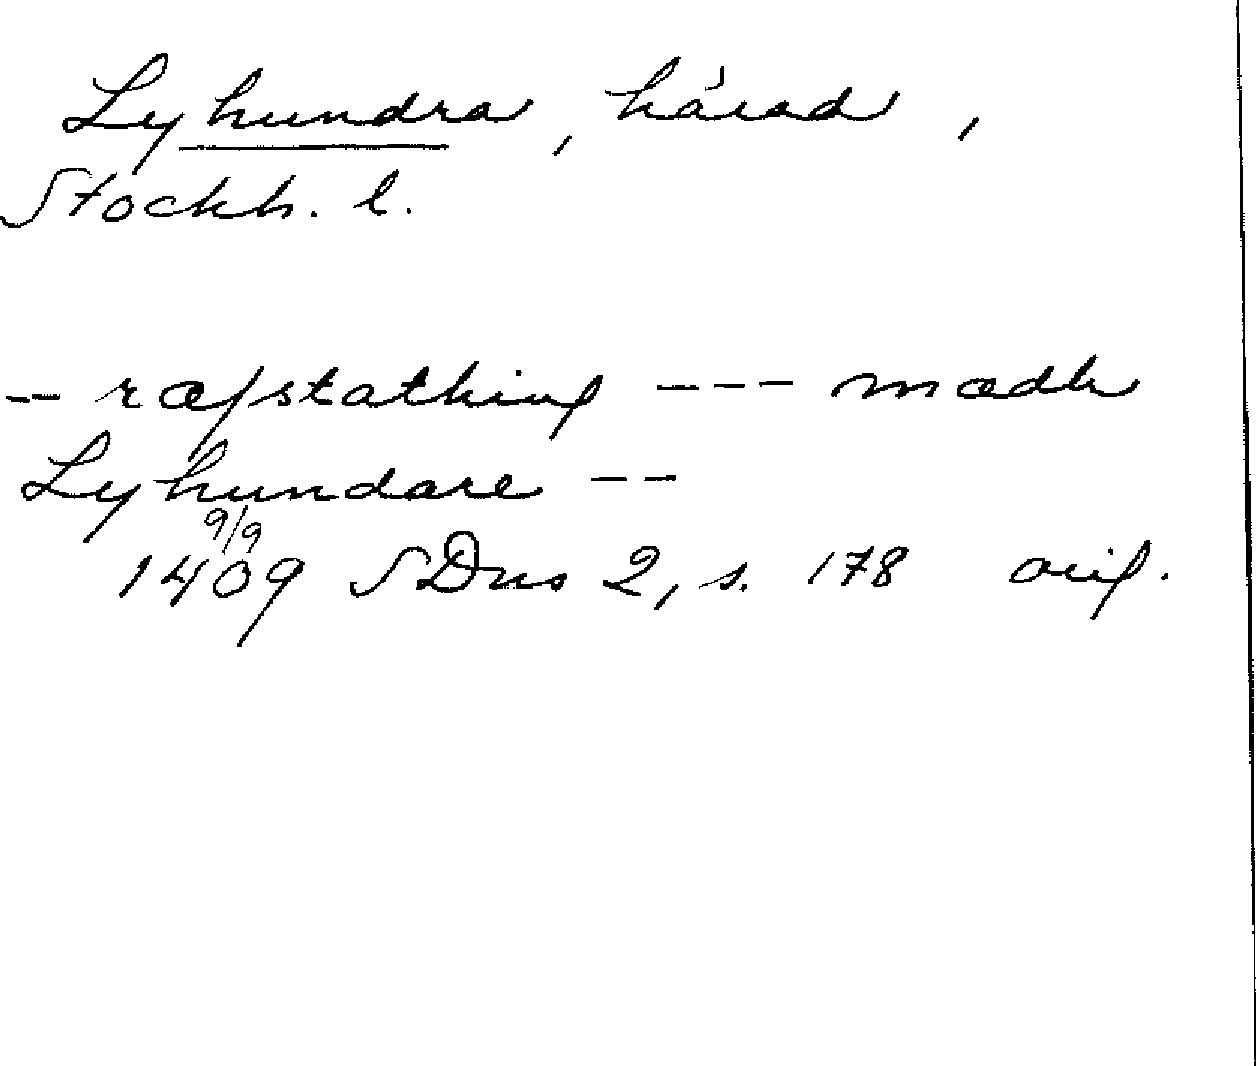 Lyhundra, härad,
Stockh. l.
-- ræfstathing --- mædh
Lyhundare --
9/9
1409 SDns 2, s. 178 orig.